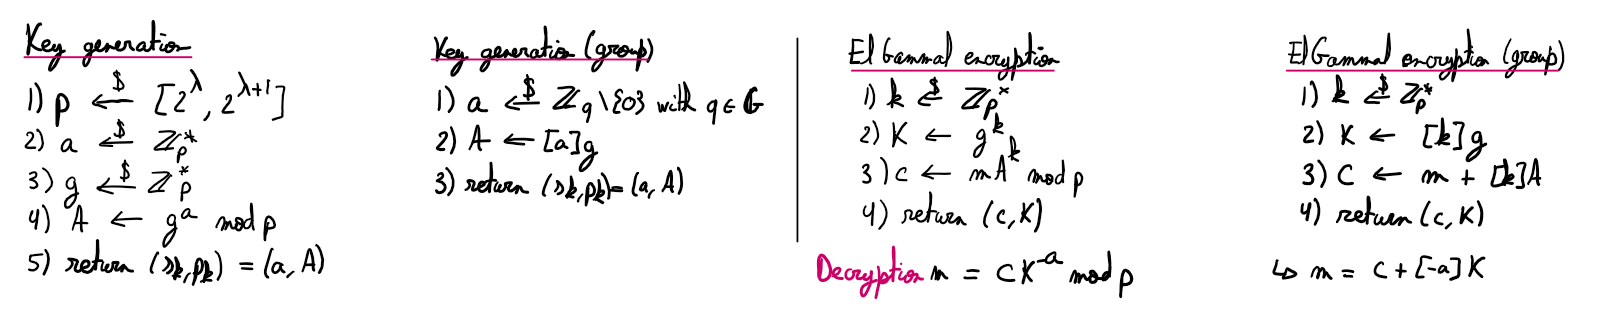 Key generation
1) p ←$ [2^λ, 2^λ+1]
2) a ←$ ℤ_p^*
3) g ←$ ℤ_p^*
4) A ← g^a mod p
5) return (sk, pk) = (a, A)
Key generation (group)
1) a ←$ ℤ_q \ {0} with q ∈ G
2) A ← [a]g
3) return (sk, pk) = (a, A)
El Gammal encryption
1) k ←$ ℤ_p^*
2) K ← g^k
3) c ← mA^k mod p
4) return (c, K)
Decryption m = cK^-a mod p
El Gammal encryption (group)
1) k ←$ ℤ_p^*
2) K ← [k]g
3) C ← m + [k]A
4) return (c, K)
↳ m = c + [-a]K